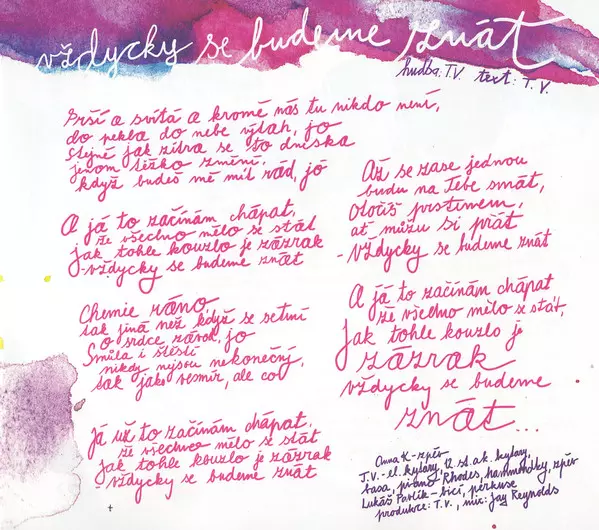 vždycky se budeme znát
hudba: T.V. text: T.V.
Prší a svítá a kromě nás tu nikdo není,
do pekla do nebe výtah, jo
Stejně jak zítra se to dneska
jenom těžko změní,
když budeš mě mít rád, jó
A já to začínám chápat,
že všechno mělo se stát
jak tohle kouzlo je zázrak
-vždycky se budeme znát
Chemie ráno,
tak jiná než když se setmí
O srdce závod, jo
Smůla i štěstí
nikdy nejsou nekonečný,
tak jako vesmír, ale co
Já už to začínám chápat,
že všechno mělo se stát
jak tohle kouzlo je zázrak
-vždycky se budeme znát
Až se zase jednou
budu na Tebe smát,
Otočíš prstenem,
ať můžu si přát
-vždycky se budeme znát
A já to začínám chápat
že všechno mělo se stát,
jak tohle kouzlo je
zázrak
vždycky se budeme
znát...
Anna K - zpěv
T.V. - el. kytary, 12 st. ak. kytary,
basa, piano, Rhodes, hammondky, zpěv
Lukáš Pavlík - bicí, perkuse
produkce: T.V., mix: Jay Reynolds